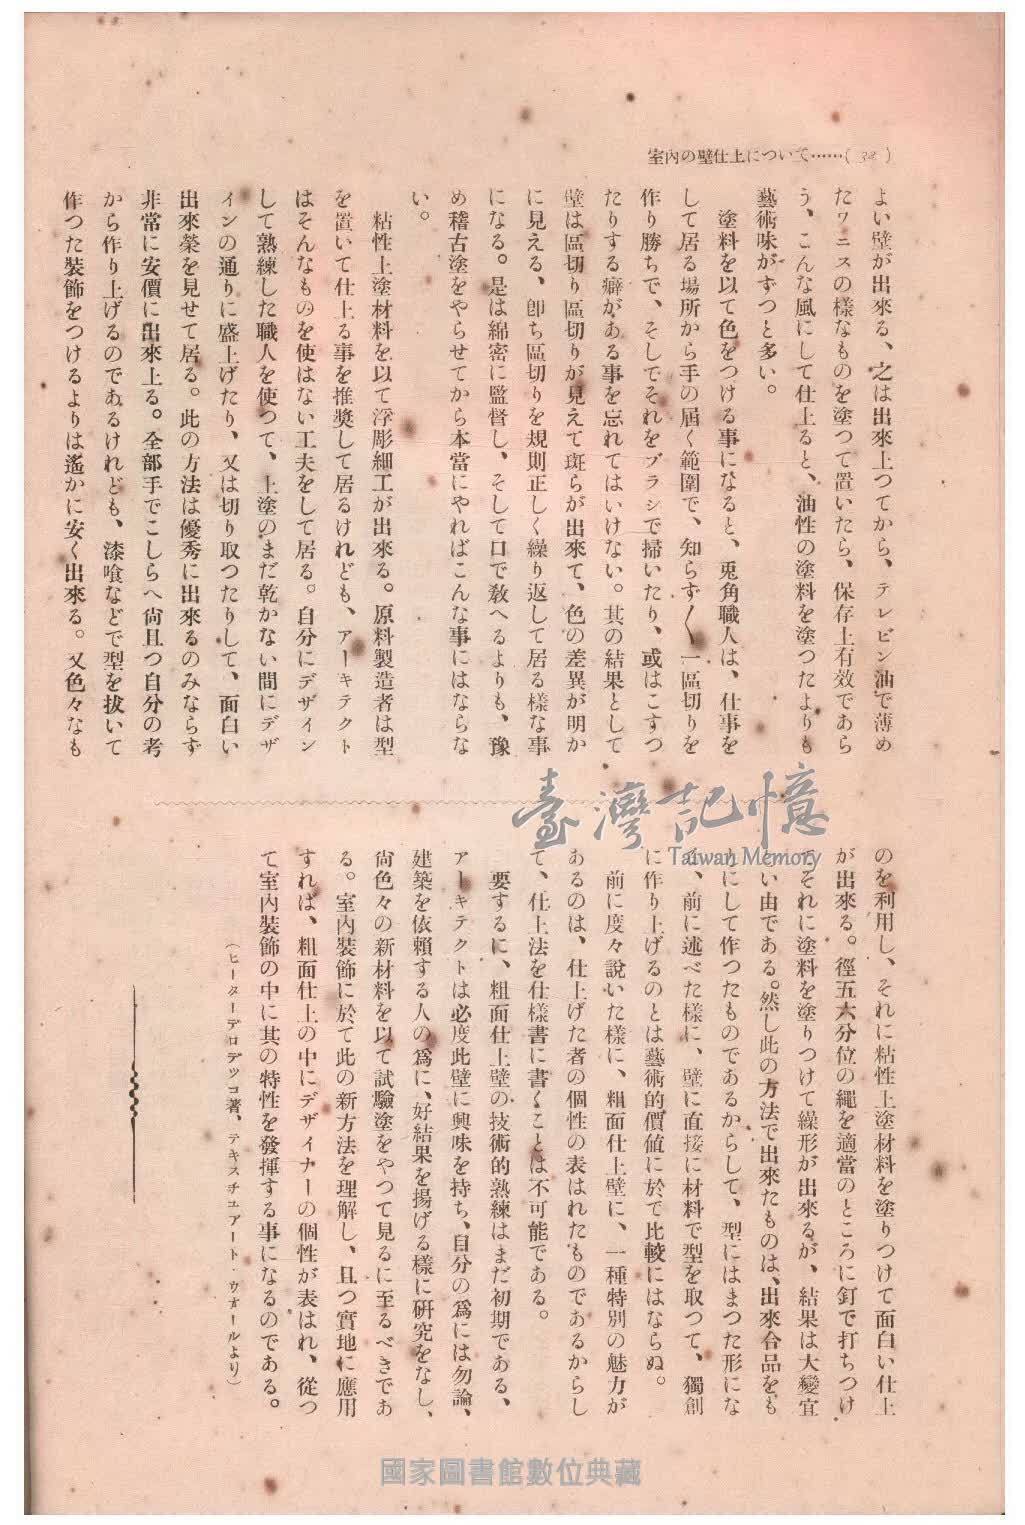 室內の壁仕上について……( 38 )
よい壁が出來る、之は出來上つてから、テレビン油で薄め
たワニスの樣なものを塗つて置いたら、保存上有效であら
う、こんな風にして仕上ると、油性の塗料を塗つたよりも
藝術味がずつと多い。
塗料を以て色をつける事になると、兎角職人は、仕事を
して居る場所から手の屆く範圍で、知らず〱一區切りを
作り勝ちで、そしてそれをブラシで掃いたり、或はこすつ
たりする癖がある事を忘れてはいけない。其の結果として
壁は區切り區切りが見えて斑らが出來て、色の差異が明か
に見える、卽ち區切りを規則正しく繰り返して居る樣な事
になる。是は綿密に監督し、そして口で敎へるよりも、豫
め稽古塗をやらせてから本當にやればこんな事にはならな
い。
粘性上塗材料を以て浮彫細工が出來る。原料製造者は型
を置いて仕上る事を推奬して居るけれども、アーキテクト
はそんなものを使はない工夫をして居る。自分にデザイン
して熟練した職人を使つて、上塗のまだ乾かない間にデザ
インの通りに盛上げたり、又は切り取つたりして、面白い
出來榮を見せて居る。此の方法は優秀に出來るのみならず
非常に安價に出來上る。全部手でこしらへ尙且つ自分の考
から作り上げるのであるけれども、漆喰などで型を拔いて
作つた裝飾をつけるよりは遙かに安く出來る。又色々なも
のを利用し、それに粘性上塗材料を塗りつけて面白い仕上
が出來る。徑五六分位の繩を適當のところに釘で打ちつけ
てそれに塗料を塗りつけて繰形が出來るが、結果は大變宜
い由である。然し此の方法で出來たものは、出來合品をも
りにして作つたものであるからして、型にはまつた形にな
り、前に述べた樣に、壁に直接に材料で型を取つて、獨創
に作り上げるのとは藝術的價値に於て比較にはならぬ。
前に度々說いた樣に、粗面仕上壁に、一種特別の魅力が
あるのは、仕上げた者の個性の表はれたものであるからし
て、仕上法を仕樣書に書くことは不可能である。
要するに、粗面仕上壁の技術的熟練はまだ初期である、
アーキテクトは必度此壁に興味を持ち、自分の爲には勿論、
建築を依賴する人の爲に、好結果を揚げる樣に硏究をなし、
尙色々の新材料を以て試驗塗をやつて見るに至るべきであ
る。室內裝飾に於て此の新方法を理解し、且つ實地に應用
すれば、粗面仕上の中にデザイナーの個性が表はれ、從つ
て室內裝飾の中に其の特性を發揮する事になるのである。
（ヒーターデロデツコ著、テキスチユアート・ウオールより）
臺灣記憶
Taiwan Memory
國家圖書館數位典藏